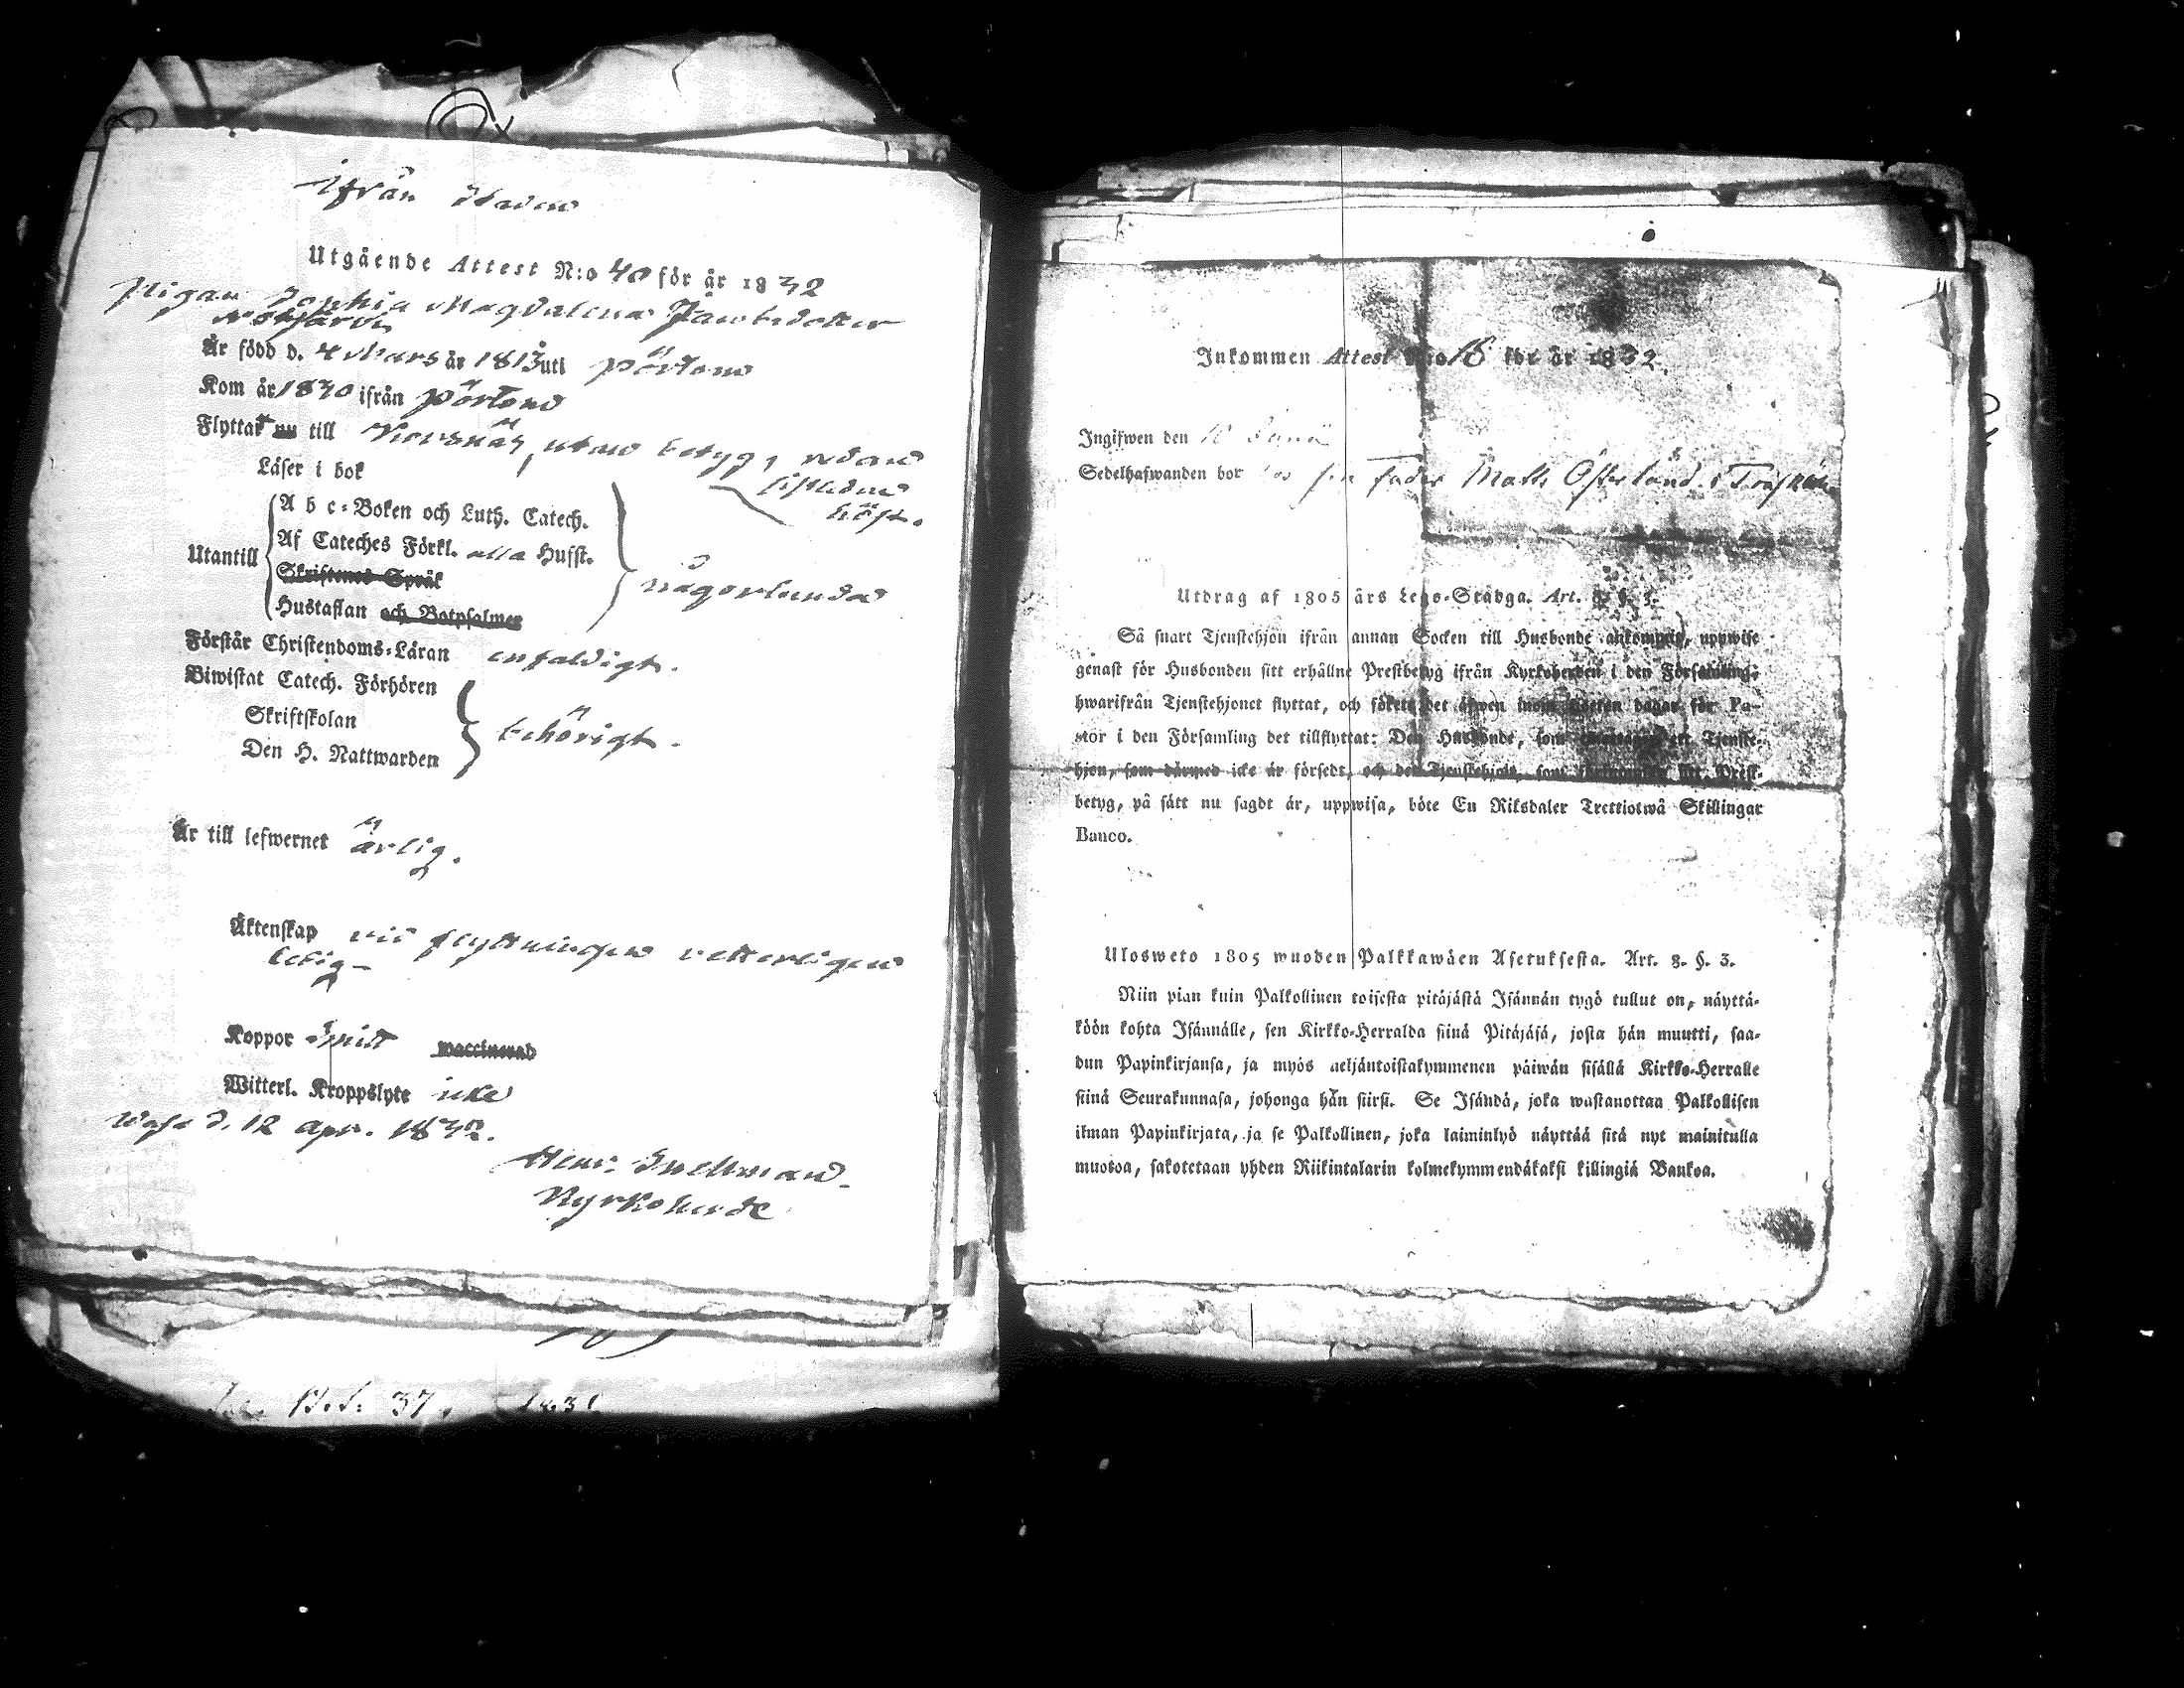 ifrån Staden
Utgående Attest N:o 40 för år 1832
Pigan Sophia Magdalena Jacobsdotter
Är född d. 4 Mars år 1813 uti Pörtom
Kom år 1830 ifrån Pörtom
Flyttat nu till Korsnäs, utan betyg, redan
sistledne
höst.
Läser i bok
A b c-Boken och Luth. Catech.
Utantill
Af Cateches Förkl. alla Husst.
Skriftenes Språk
någorlunda
Hustaflan och Botpsalmer
Förstår Christendoms-Läran enfaldigt.
Biwistat Catech. Förhören
Skriftskolan
behörigt.
Den H. Nattwarden
Är till lefwernet ärlig.
Äktenskap vid flyttningen vetterligen
ledig
Koppor waccinerad
Witterl. Kroppslyte icke
Wasa d. 12 Apr. 1832.
Henr. Snellman
Kyrkoherde
37. 1831
Inkommen Attest N:o 18 för år 1832.
Ingifwen den 10 Junii
Sedelhafwanden bor hos sin Fader Matts Österlund i
Utdrag af 1805 års Lego-Stadga. Art. 8. §. 3.
Så snart Tjenstehjon ifrån annan Socken till Husbonde ankommit, uppwise
genast för Husbonden sitt erhållne Prestbetyg ifrån Kyrkoherden i den Församling;
hwarifrån Tjenstehjonet flyttat, och sökete det äfwen inom fjorton dagar för Pa-
stor i den Församling det tillflyttat: Den Husbonde, som emottager ett Tjenste-
hjon, som dermed icke är försedt, och det Tjenstehjon, som försummar sitt Prest-
betyg, på sätt nu sagdt är, uppwisa, böte En Riksdaler Trettiotwå Skillingar
Banco.
Ulosweto 1805 wuoden Palkkawäen Asetuksesta. Art. 8. §. 3.
Niin pian kuin Palkollinen toisesta pitäjästä Isännän tygö tullut on, näyttä-
köön kohta Isännälle, sen Kirkko-Herralda siinä Pitäjäsä, josta hän muutti, saa-
dun Papinkirjansa, ja myös neljäntoistakymmenen päiwän sisällä Kirkko-Herralle
siinä Seurakunnasa, johonga hän siirsi. Se Isändä, joka wastanottaa Palkollisen
ilman Papinkirjata, ja se Palkollinen, joka laiminlyö näyttää sitä nyt mainitulla
muotoa, sakotetaan yhden Riikintalarin kolmekymmendäkaksi killingiä Bankoa.